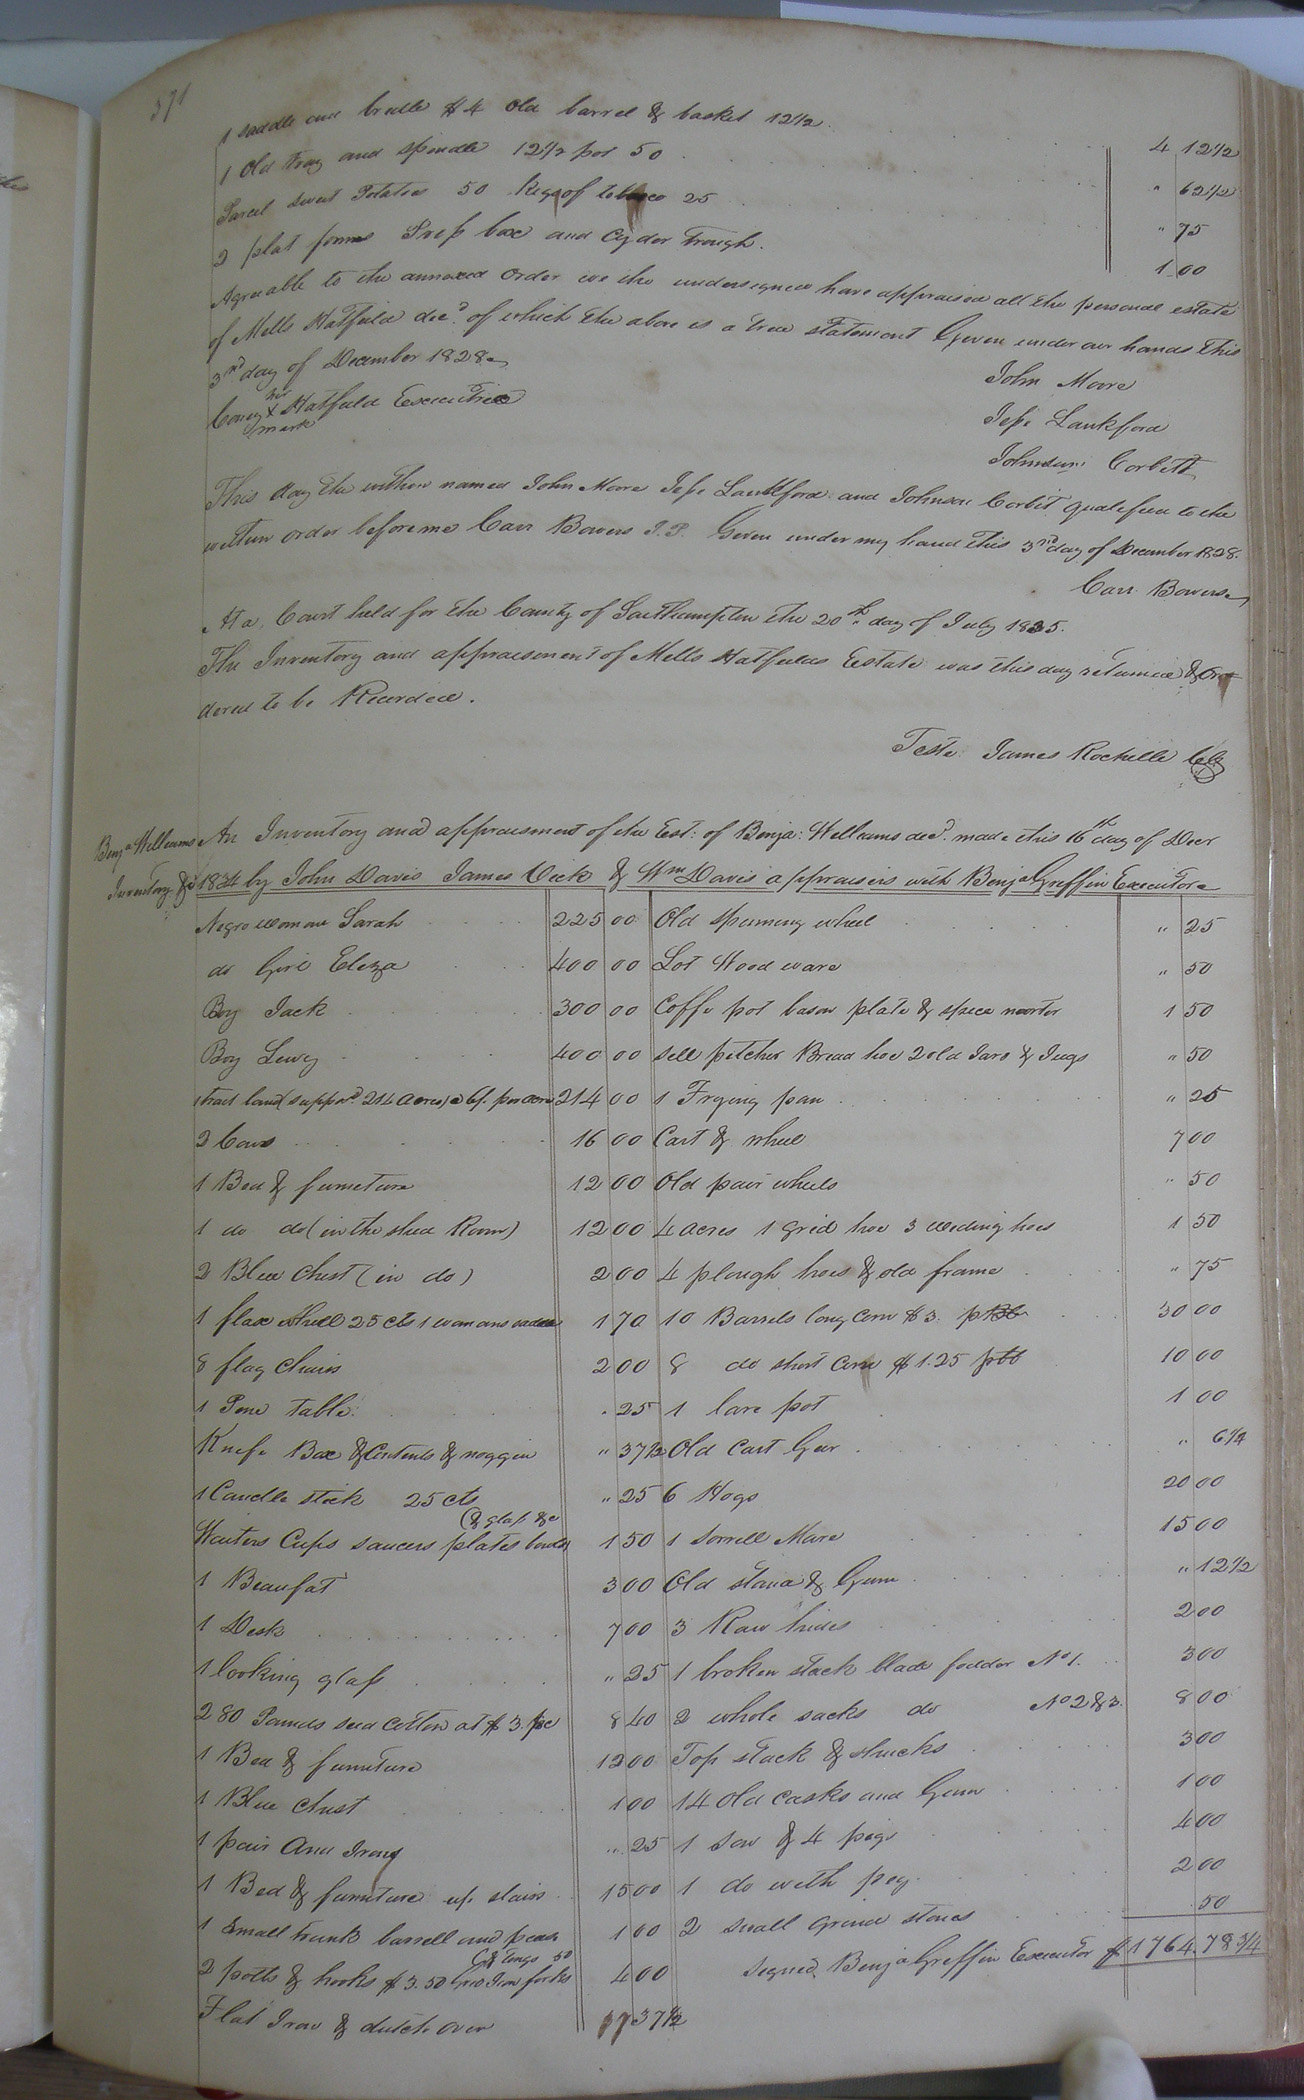 371
1 saddle and bridle $4 Old barrel & basket 12½ 4 12½
1 Old tray and spindle 12½ pot 50 " 62½
Parcel sweet Potatoes 50 Keg of tobacco 25 " 75
2 plat forms Press box and Cyder trough. 1 00
Agreeable to the annexed order we the undersigned have appraised all the personal estate
of Mills Hatfield decd. of which the above is a true statement Given under our hands this
3rd day of December 1828.
her
X Hatfield Executrix
mark
John Moore
Jesse Lankford
Johnson Corbitt
This day the within named John Moore Jesse Lankford and Johnson Corbit qualified to the
written order before me Carr Bowers J.P. Given under my hand this 3rd day of December 1828.
Carr Bowers
At a Court held for the County of Southampton the 20th day of July 1835.
The Inventory and appraisement of Mills Hatfields Estate was this day returned & Or=
dered to be Recorded.
Teste James Rochelle Clk
Benja Williams
Inventory &c
An Inventory and appraisment of the Est: of Benja: Williams decd. made this 16th day of Decr
1834 by John Davis James Vick & Wm Davis appraisers with Benja Griffin Executor
Negro woman Sarah 225 00 Old spinning wheel " 25
do Girl Eliza 400 00 Lot Wood ware " 50
Boy Jack 300 00 Coffe pot bason plate & spice morter 1 50
Boy Lewy 400 00 sell pitcher Bread hoe 2 old Jars & Jugs " 50
1 tract land (suppod. 214 acres) @ 6/. per acre 214 00 1 Frying pan " 25
2 Cows 16 00 Cart & wheel 7 00
1 Bed & furniture 12 00 Old pair wheels " 50
1 do do (in the shed Room) 12 00 4 acres 1 grid hoe 3 weding hoes 1 50
2 Blue Chest (in do) 2 00 4 plough hoes & old frame " 75
1 flax wheel 25 cts 1 womans saddle 1 70 10 Barrels long Corn $3. 30 00
8 flag Chairs 2 00 8 do short Corn $1.25 10 00
1 Pine table " 25 1 lare pot 1 00
Knife Box & Contents & noggin " 37½ Old Cart Gear " 6¼
1 Candle stick 25 cts " 25 6 Hogs 20 00
(& glass &c
Waiters Cups saucers plates 1 50 1 Sorrell Mare 15 00
1 Beaufat 3 00 Old stand & Gum " 12½
1 Desk 7 00 3 Raw hides 2 00
1 looking glass " 25 1 broken stack blade fodder No 1. 3 00
280 Pounds seed Cotton at $3. 8 40 2 whole sacks do No 2 & 3. 8 00
1 Bed & furniture 12 00 Top stack & shucks 3 00
1 Blue Chest 1 00 14 old casks and Gum 1 00
1 pair And Irons " 25 1 Sow & 4 pigs 4 00
1 Bed & furniture up stairs 15 00 1 do with pig 2 00
1 Small trunk barrell and pease 1 00 2 small grind stones 50
(& tongs 50
2 potts & hooks $3.50 Grid Iron forks 4 00 signed Benja Griffin Executor $1764.78 3/4
Flat Iron & dutch oven 37½